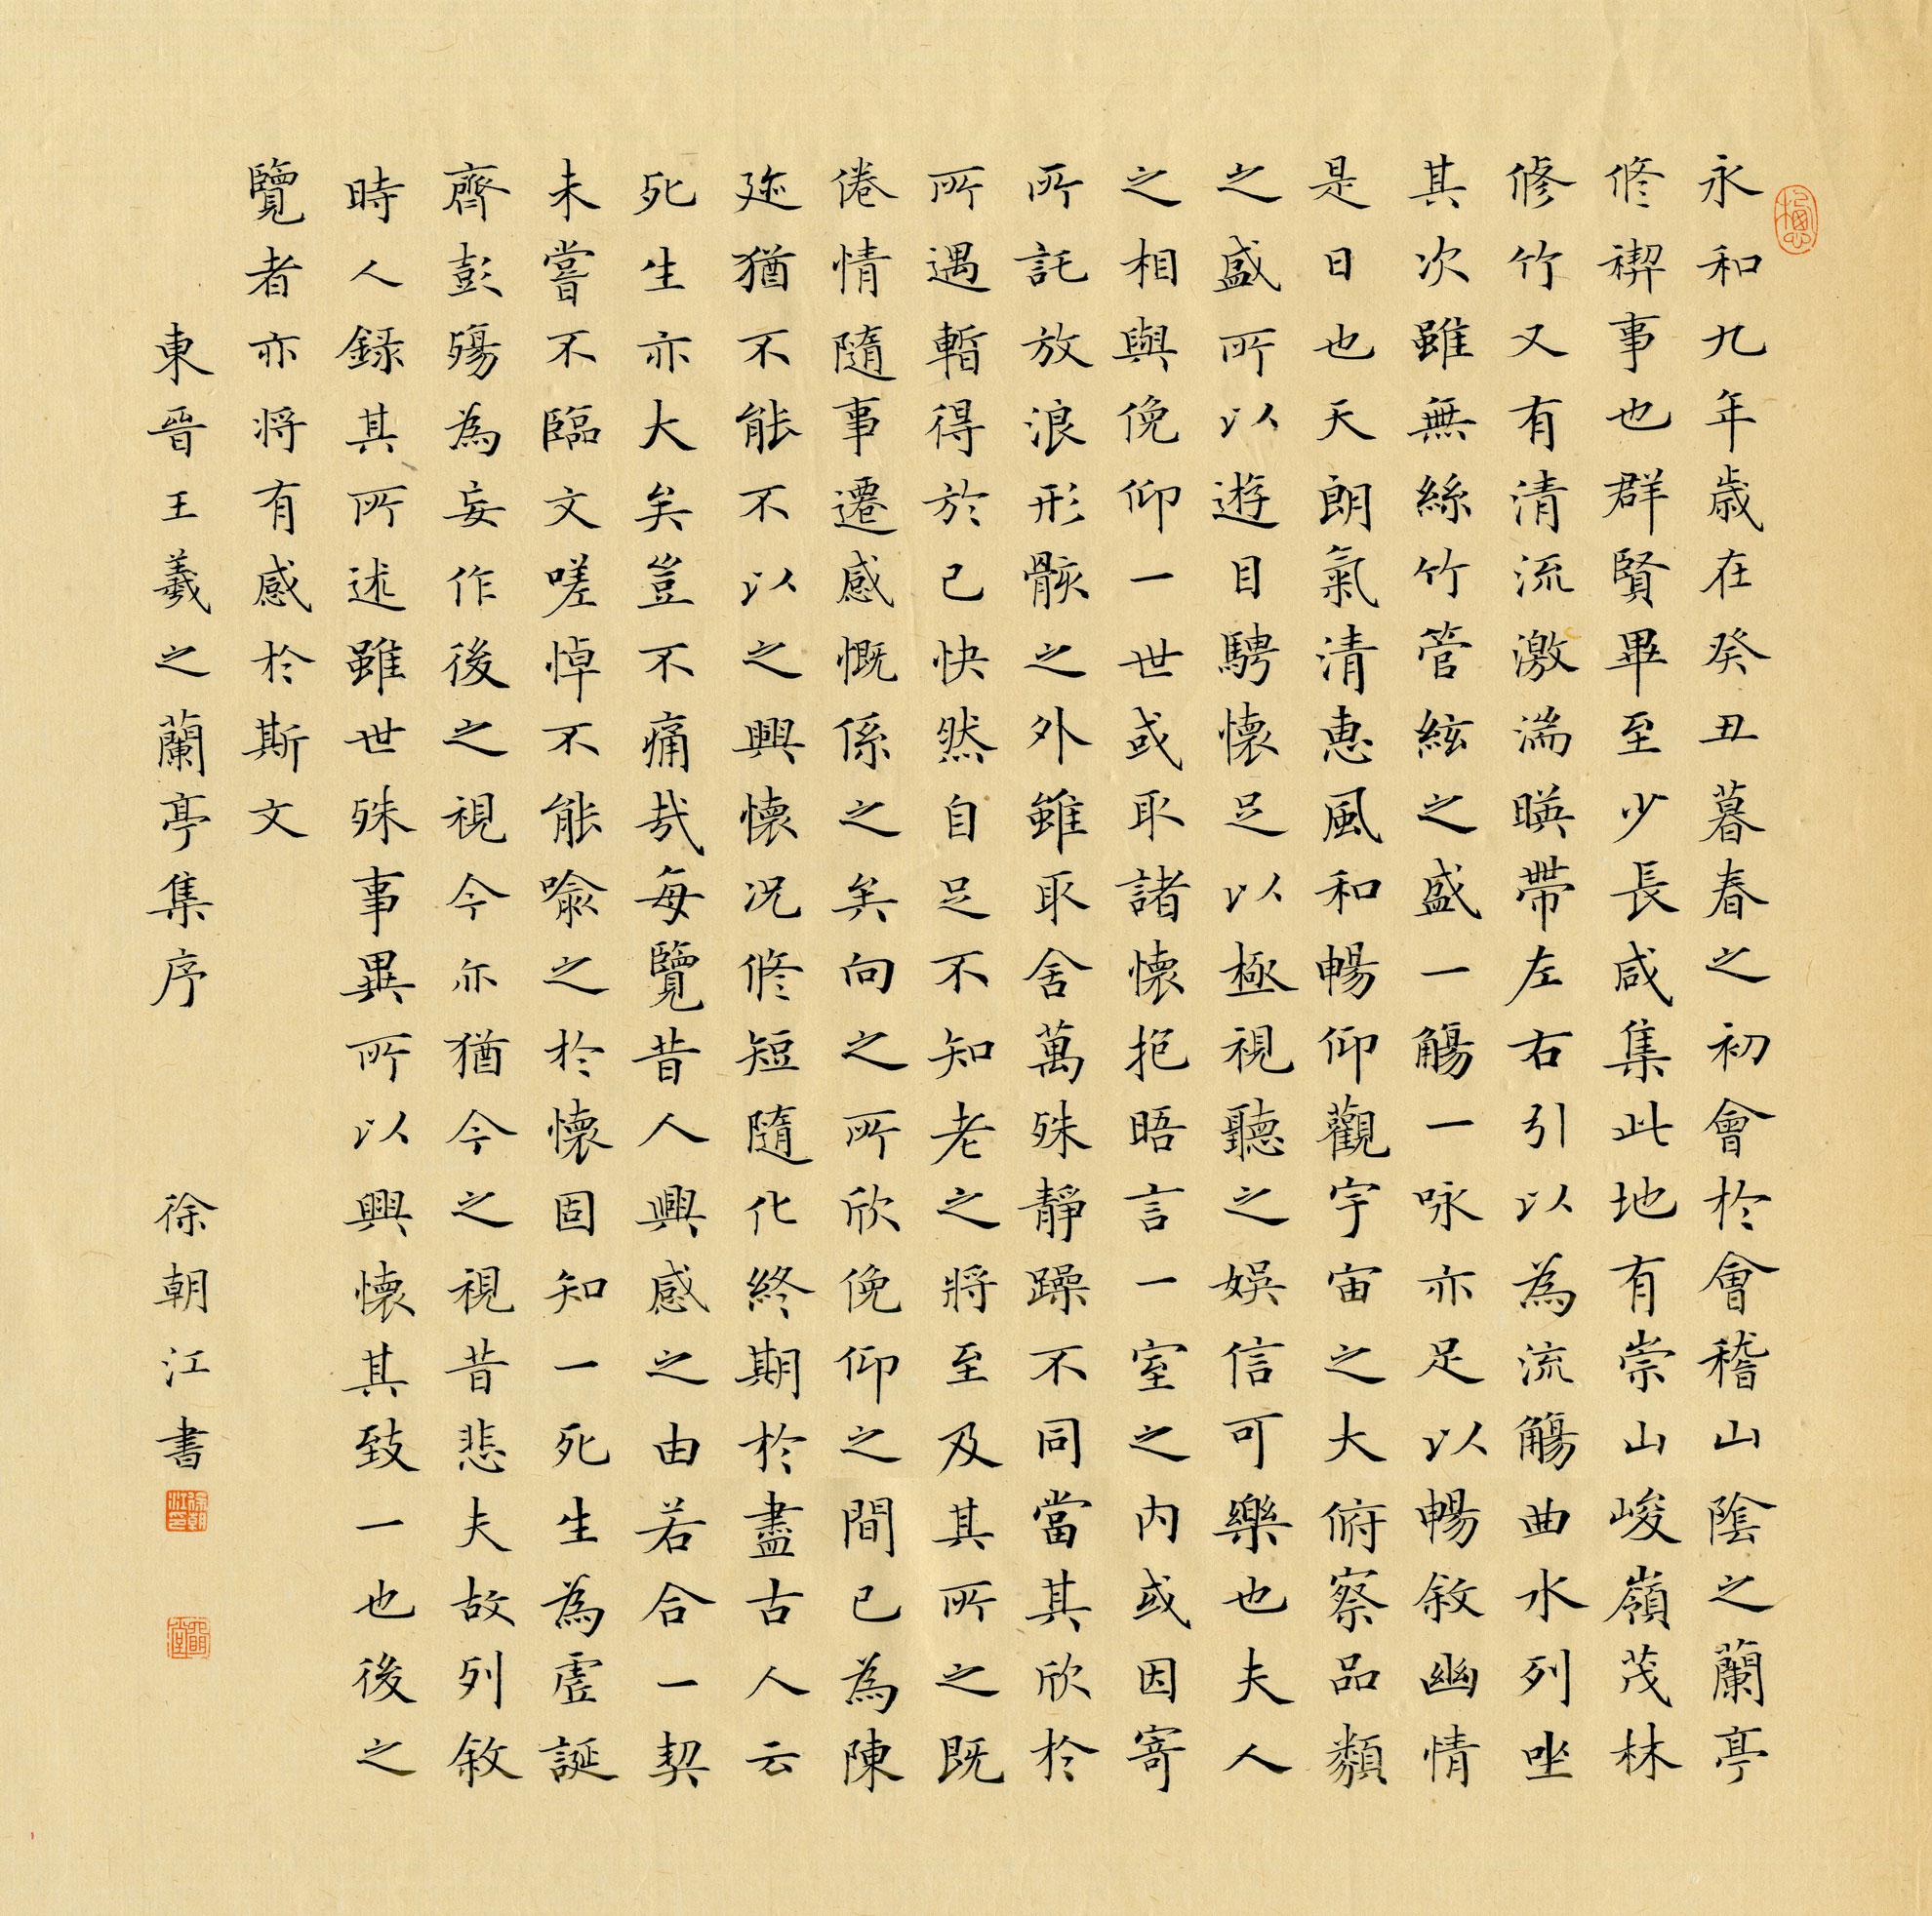 永和九年歲在癸丑暮春之初會於會稽山陰之蘭亭
修禊事也群賢畢至少長咸集此地有崇山峻嶺茂林
修竹又有清流激湍暎帶左右引以為流觴曲水列坐
其次雖無絲竹管絃之盛一觴一咏亦足以暢敘幽情
是日也天朗氣清惠風和暢仰觀宇宙之大俯察品類
之盛所以遊目騁懷足以極視聽之娛信可樂也夫人
之相與俛仰一世或取諸懷抱晤言一室之內或因寄
所託放浪形骸之外雖取舍萬殊靜躁不同當其欣於
所遇暫得於己快然自足不知老之將至及其所之既
倦情隨事遷感慨係之矣向之所欣俛仰之間已為陳
迹猶不能不以之興懷况修短隨化終期於盡古人云
死生亦大矣豈不痛哉每覽昔人興感之由若合一契
未嘗不臨文嗟悼不能喻之於懷固知一死生為虛誕
齊彭殤為妄作後之視今亦猶今之視昔悲夫故列敘
時人錄其所述雖世殊事異所以興懷其致一也後之
覽者亦將有感於斯文
東晉王羲之蘭亭集序 徐朝江書
徐朝江印